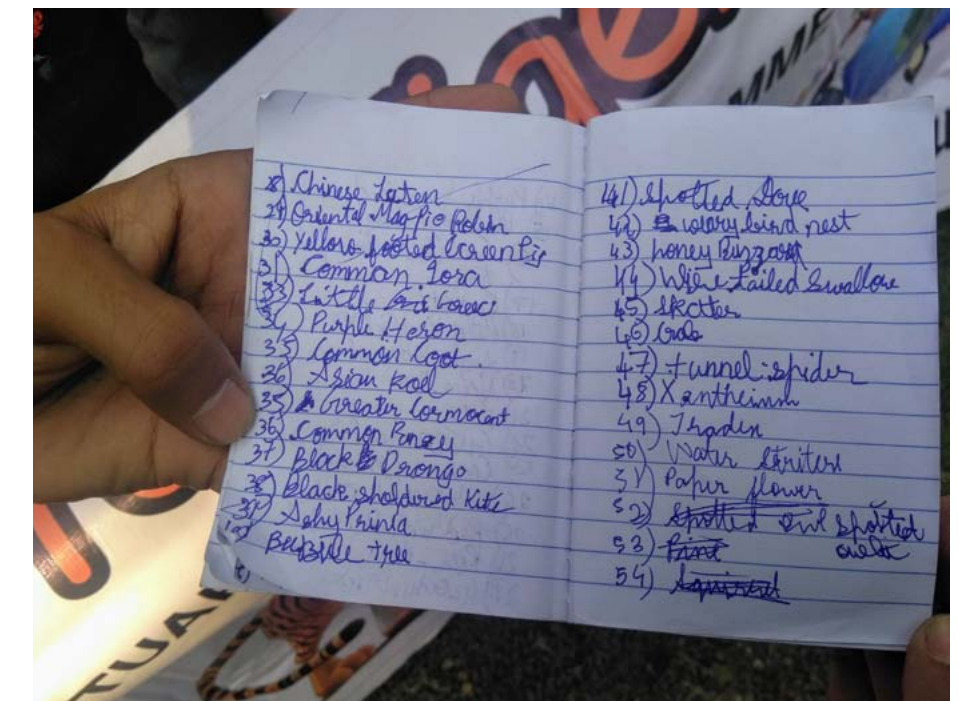 28) Chinese Laten
29) Oriental Magpie Robin
30) Yellow footed Green Pig
31) Common Iora
33) Little Grebe
34) Purple Heron
35) Common Coot
36) Asian Koel
35) Greater Cormorant
36) Common
37) Black Drongo
38) Black sholdured Kite
39) Ashy Prinia
40) tree
41) Spotted Dove
42) bird nest
43) honey Buzzard
44) Wire tailed Swallow
45)
46)
47) tunnel spider
48) Xantheimm
49) Tradex
50) Water Striters
51) Paper flower
52) Spotted owl spotted
owlet
53)
54) Squirrel
TUA
MME